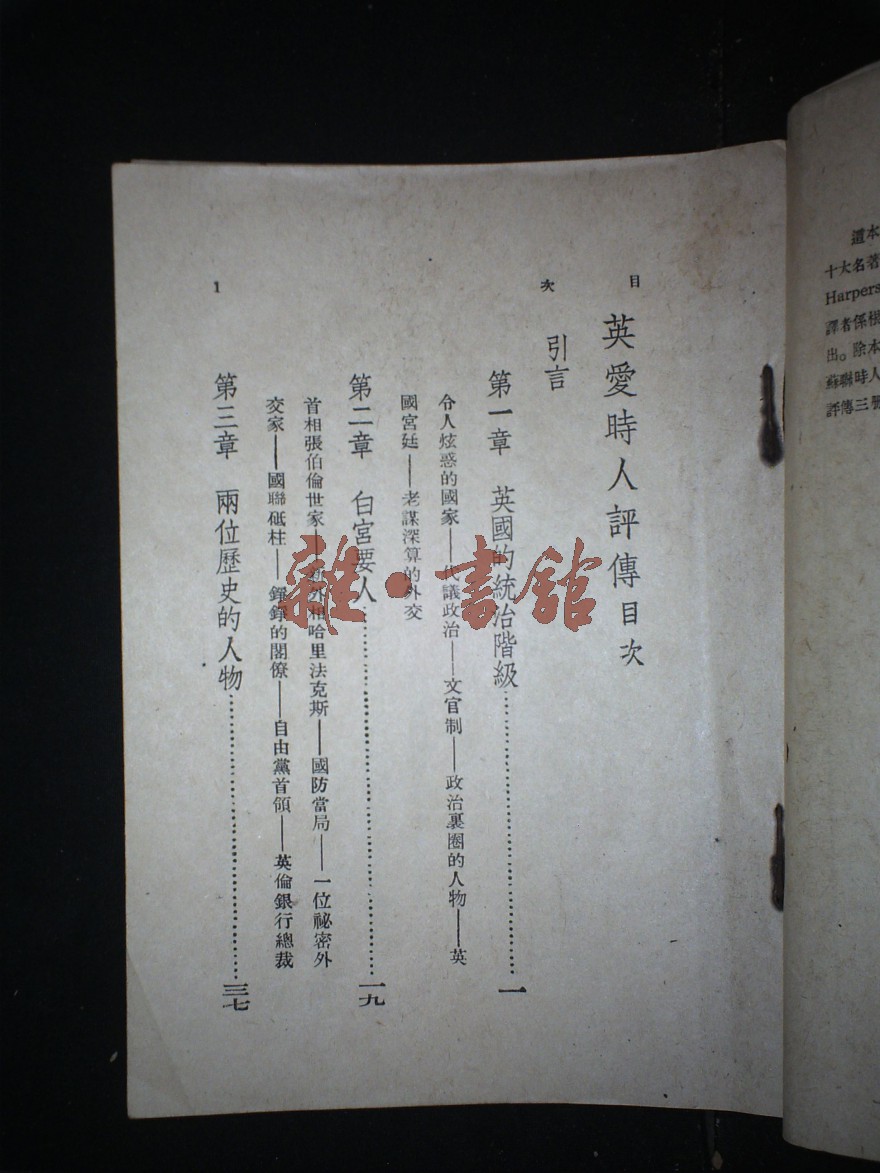 目 次
英愛時人評傳目次
引言
第一章 英國的統治階級……一
令人炫惑的國家——代議政治——文官制——政治裏圈的人物——英
國宮廷——老謀深算的外交
第二章 白宮要人……一九
首相張伯倫世家——新外相哈里法克斯——國防當局——一位祕密外
交家——國聯砥柱——錚錚的閣僚——自由黨首領——英倫銀行總裁
第三章 兩位歷史的人物……三七
1
這本
十大名著
Harpers
譯者係根
出。除本
蘇聯時人
評傳三册
雜·書館